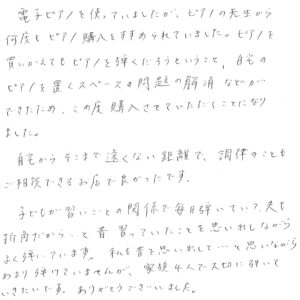 電子ピアノを使っていましたが、ピアノの先生から
何度もピアノ購入をすすめられていました。ピアノを
買いかえてもピアノを弾くだろうということ、自宅の
ピアノを置くスペースの問題の解消などが
できたため、この度購入させていただくことになり
ました。
自宅からそこまで遠くない距離で、調律のことも
ご相談できるお店で良かったです。
子どもが習いごとの関係で毎日弾いていて、夫も
折角だから、と昔習っていたことを思い出しながら
よく弾いています。私も昔を思い出して…と思いながら
あまり弾けていませんが、家族4人で大切に弾いて
いきたいです。ありがとうございました。